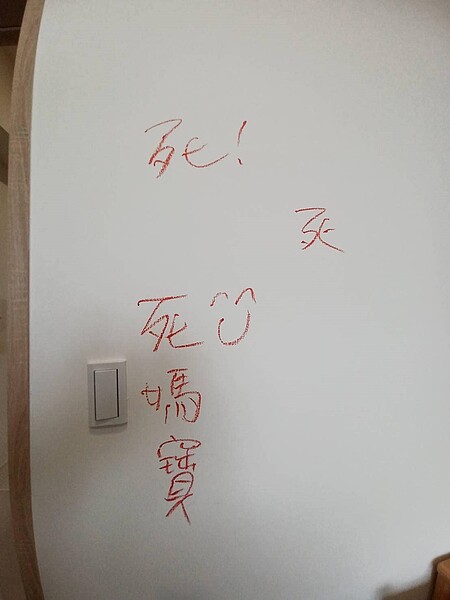 死!
死
死^^
媽
寶